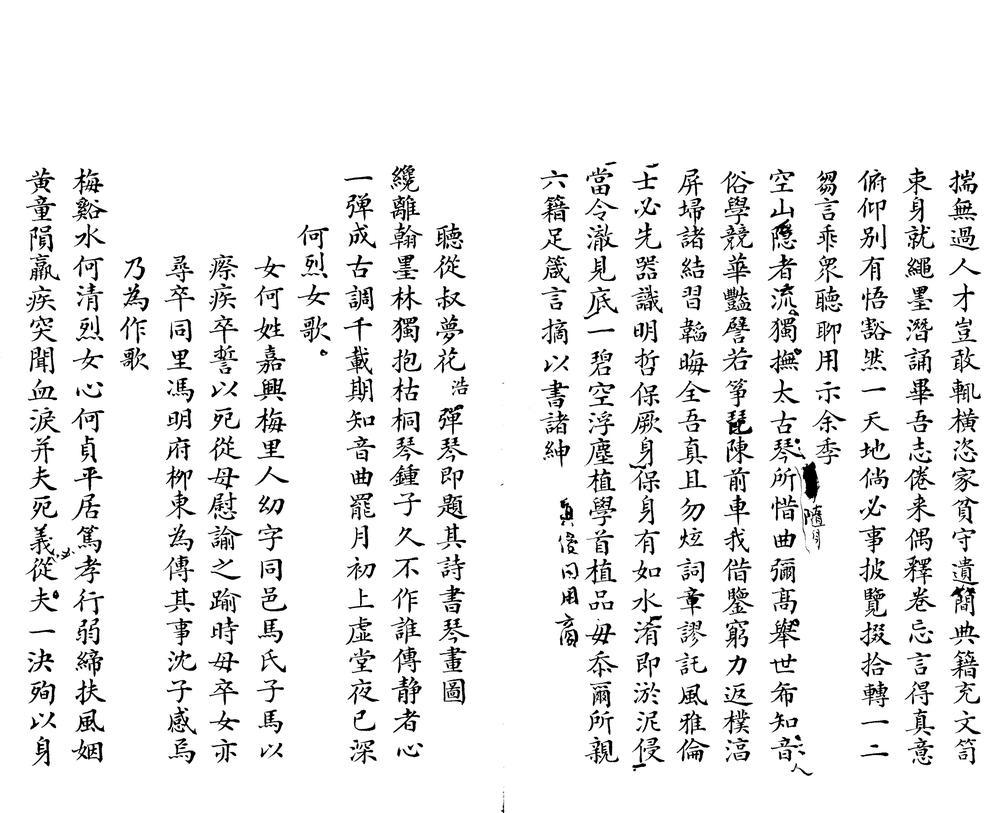 揣無過人才豈敢輒橫恣家貧守遺簡典籍充文笥
束身就繩墨潛誦畢吾志倦来偶釋卷忘言得真意
俯仰别有悟豁然一天地倘必事披覽掇拾轉一二
芻言乖衆聽聊用示余季
空山隱者流獨撫太古琴所惜曲彌高舉世希知音
人
俗學競華豔譬若箏琵陳前車我借鑒窮力返樸湻
屏埽諸結習韜晦全吾真且勿炫詞章謬託風雅倫
士必先器識明哲保厥身保身有如水淆即淤泥侵
當令澈見底一碧空浮塵植學首植品毋忝爾所親
六籍足箴言摘以書諸紳
聽從叔夢花浩彈琴即題其詩書琴畫圖
纔離翰墨林獨抱枯桐琴鍾子久不作誰傳静者心
一弾成古調千載期知音曲罷月初上虚堂夜已深
何烈女歌。
女何姓嘉興梅里人幼字同邑馬氏子馬以
瘵疾卒誓以死從母慰諭之踰時母卒女亦
尋卒同里馮明府柳東為傳其事沈子感焉
乃為作歌
梅谿水何清烈女心何貞平居篤孝行弱締扶風姻
黄童隕羸疾突聞血淚并夫死義從夫一決殉以身